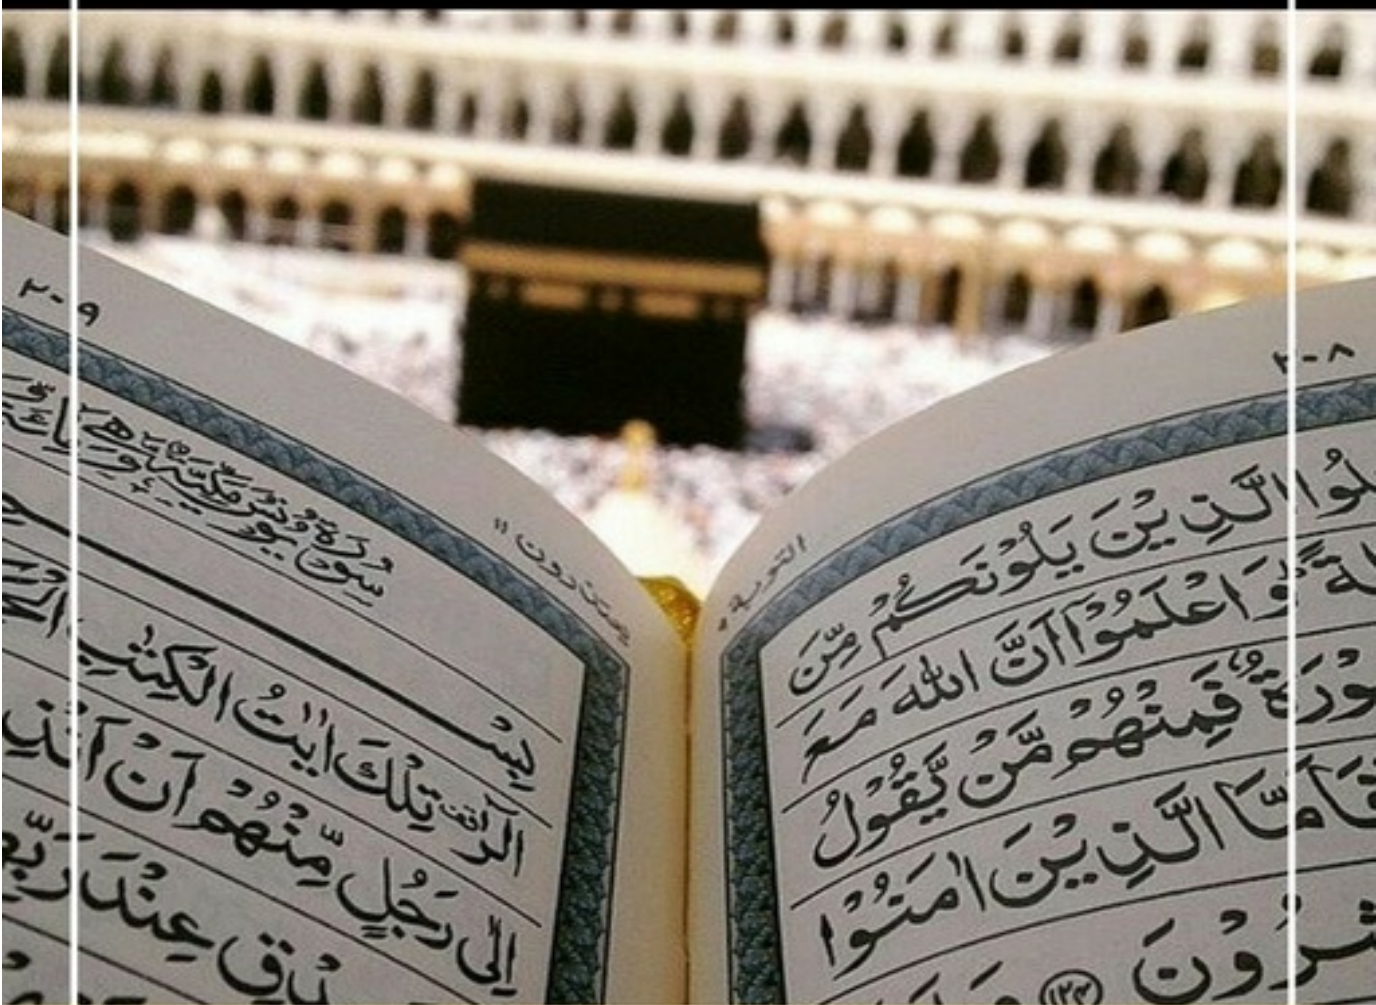 ٢٠٨
التوبة
لُوا الَّذِيْنَ يَلُوْنَكُمْ مِّنَ
وَاعْلَمُوْٓا اَنَّ اللّٰهَ مَعَ
وْرَةٌ فَمِنْهُمْ مَّنْ يَّقُوْلُ
فَاَمَّا الَّذِيْنَ اٰمَنُوْا
شِرُوْنَ ١٢٤
٢٠٩
يعتذرون ١١
سُوْرَةُ يُوْنُسَ مَكِّيَّةٌ وَّهِيَ مِائَةٌ
بِسْ
الٓرٰ تِلْكَ اٰيٰتُ الْكِتٰبِ
اِلٰى رَجُلٍ مِّنْهُمْ اَنْ اَنْذِ
دْقٍ عِنْدَ رَبِّهِ